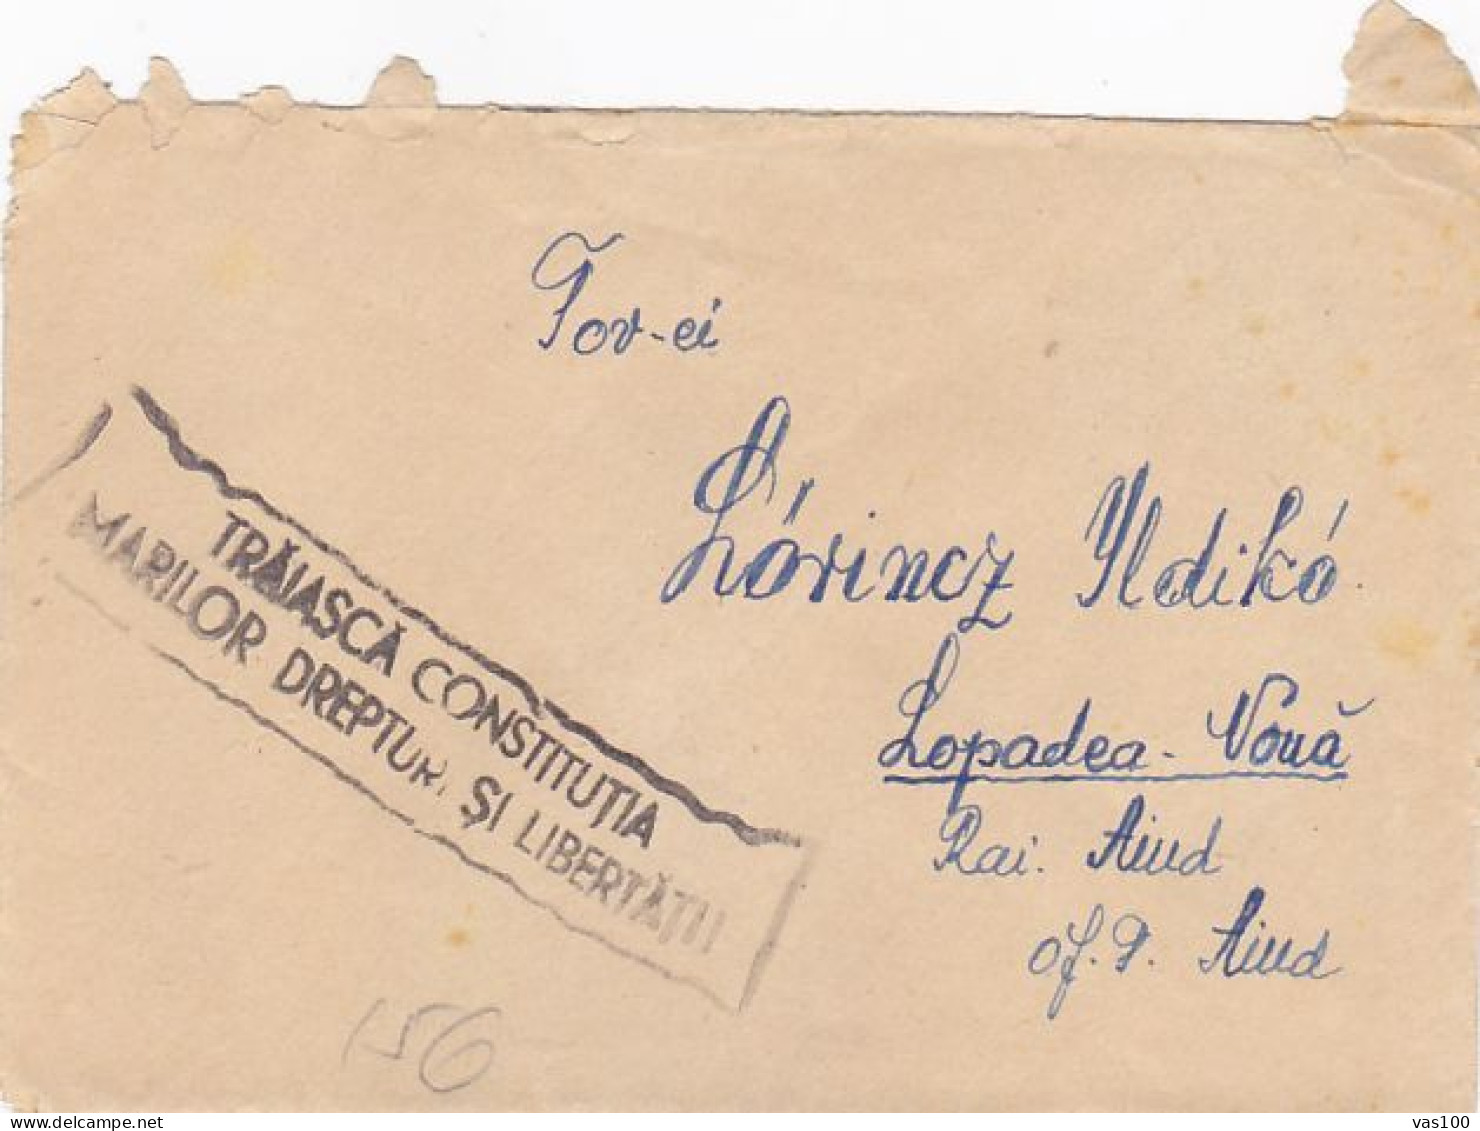 Tov-ei
Lórincz Ildikó
Lopadea-Nouă
Rai. Aiud
of. P. Aiud
TRĂIASCĂ CONSTITUȚIA
MARILOR DREPTURI ȘI LIBERTĂȚII
156
vas100